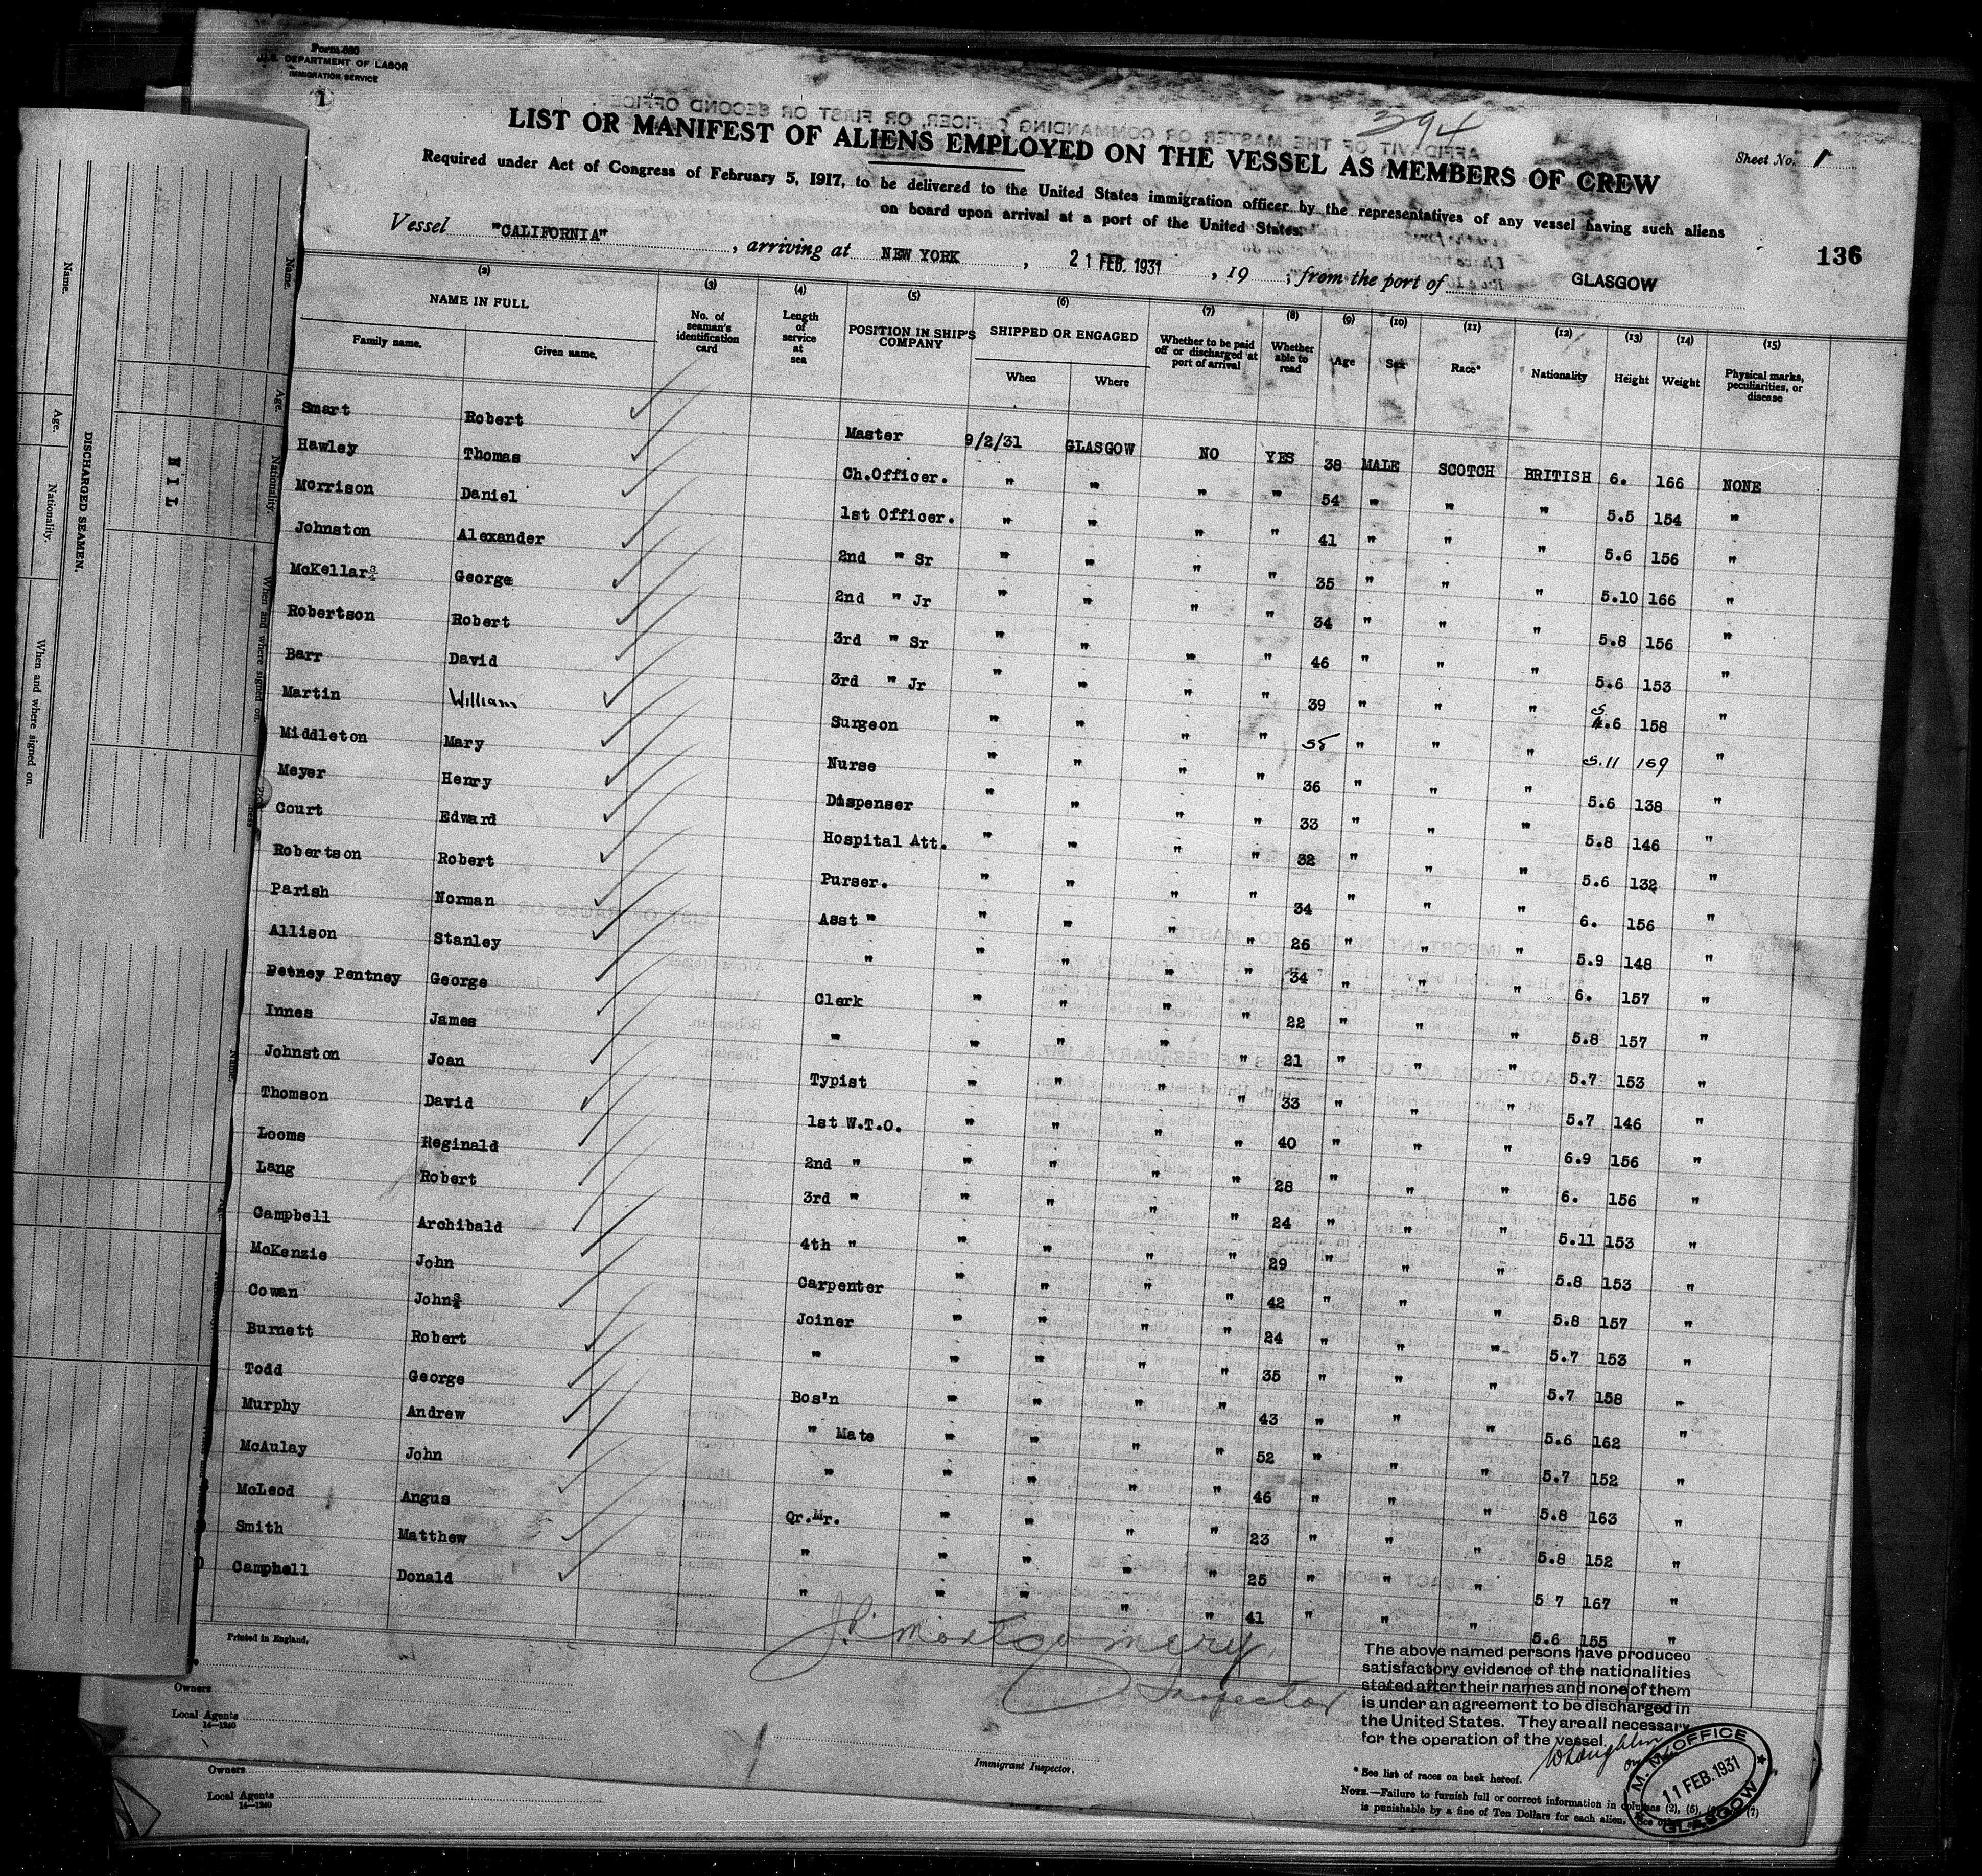 Form 680
U.S. DEPARTMENT OF LABOR
IMMIGRATION SERVICE
1
394
Sheet No. 1
LIST OR MANIFEST OF ALIENS EMPLOYED ON THE VESSEL AS MEMBERS OF CREW
Required under Act of Congress of February 5, 1917, to be delivered to the United States immigration officer by the representatives of any vessel having such aliens
on board upon arrival at a port of the United States.
136
Vessel "CALIFORNIA", arriving at NEW YORK, 21 FEB. 1931, 19 ; from the port of GLASGOW
(2) (3) (4) (5) (6) (7) (8) (9) (10) (11) (12) (13) (14) (15)
NAME IN FULL Family name. Given name. No. of seaman's identification card Length of service at sea POSITION IN SHIP'S COMPANY SHIPPED OR ENGAGED When Where Whether to be paid off or discharged at port of arrival Whether able to read Age Sex Race* Nationality Height Weight Physical marks, peculiarities, or disease
Smart Robert Master 9/2/31 GLASGOW NO YES 38 MALE SCOTCH BRITISH 6. 166 NONE
Hawley Thomas Ch.Officer. " " " " 54 " " " 5.5 154 "
Morrison Daniel 1st Officer. " " " " 41 " " " 5.6 156 "
Johnston Alexander 2nd " Sr " " " " 35 " " " 5.10 166 "
McKellar George 2nd " Jr " " " " 34 " " " 5.8 156 "
Robertson Robert 3rd " Sr " " " " 46 " " " 5.6 153 "
Barr David 3rd " Jr " " " " 39 " " " 5.6 158 "
Martin William Surgeon " " " " 58 " " " 5.11 169 "
Middleton Mary Nurse " " " " 36 " " " 5.6 138 "
Meyer Henry Dispenser " " " " 33 " " " 5.8 146 "
Court Edward Hospital Att. " " " " 32 " " " 5.6 132 "
Robertson Robert Purser. " " " " 34 " " " 6. 156 "
Parish Norman Asst " " " " " 26 " " " 5.9 148 "
Allison Stanley " " " " " 34 " " " 6. 157 "
Petney Pentney George Clerk " " " " 22 " " " 5.8 157 "
Innes James " " " " " 21 " " " 5.7 153 "
Johnston Joan Typist " " " " 33 " " " 5.7 146 "
Thomson David 1st W.T.O. " " " " 40 " " " 6.9 156 "
Looms Reginald 2nd " " " " " 28 " " " 6. 156 "
Lang Robert 3rd " " " " " 24 " " " 5.11 153 "
Campbell Archibald 4th " " " " " 29 " " " 5.8 153 "
McKenzie John Carpenter " " " " 42 " " " 5.8 157 "
Cowan John Joiner " " " " 24 " " " 5.7 153 "
Burnett Robert " " " " " 35 " " " 5.7 158 "
Todd George Bos'n " " " " 43 " " " 5.6 162 "
Murphy Andrew " Mate " " " " 52 " " " 5.7 152 "
McAulay John " " " " " 46 " " " 5.8 163 "
McLeod Angus Qr.Mr. " " " " 23 " " " 5.8 152 "
Smith Matthew " " " " " 25 " " " 5 7 167 "
Campbell Donald " " " " " 41 " " " 5.6 155 "
Printed in England.
J. Montgomery
Inspector
The above named persons have produced
satisfactory evidence of the nationalities
stated after their names and none of them
is under an agreement to be discharged in
the United States. They are all necessary
for the operation of the vessel.
Owners
Local Agents
14—1240
Immigrant Inspector.
* See list of races on back hereof.
NOTE.—Failure to furnish full or correct information in columns (2), (5), (7)
is punishable by a fine of Ten Dollars for each alien. See
M. M. OFFICE
11 FEB. 1931
GLASGOW
Owners
Local Agents
14—1240
DISCHARGED SEAMEN.
Name. Age. Nationality. When and where signed on.
NIL
Name. Age. Nationality. When and where signed on.
Name.